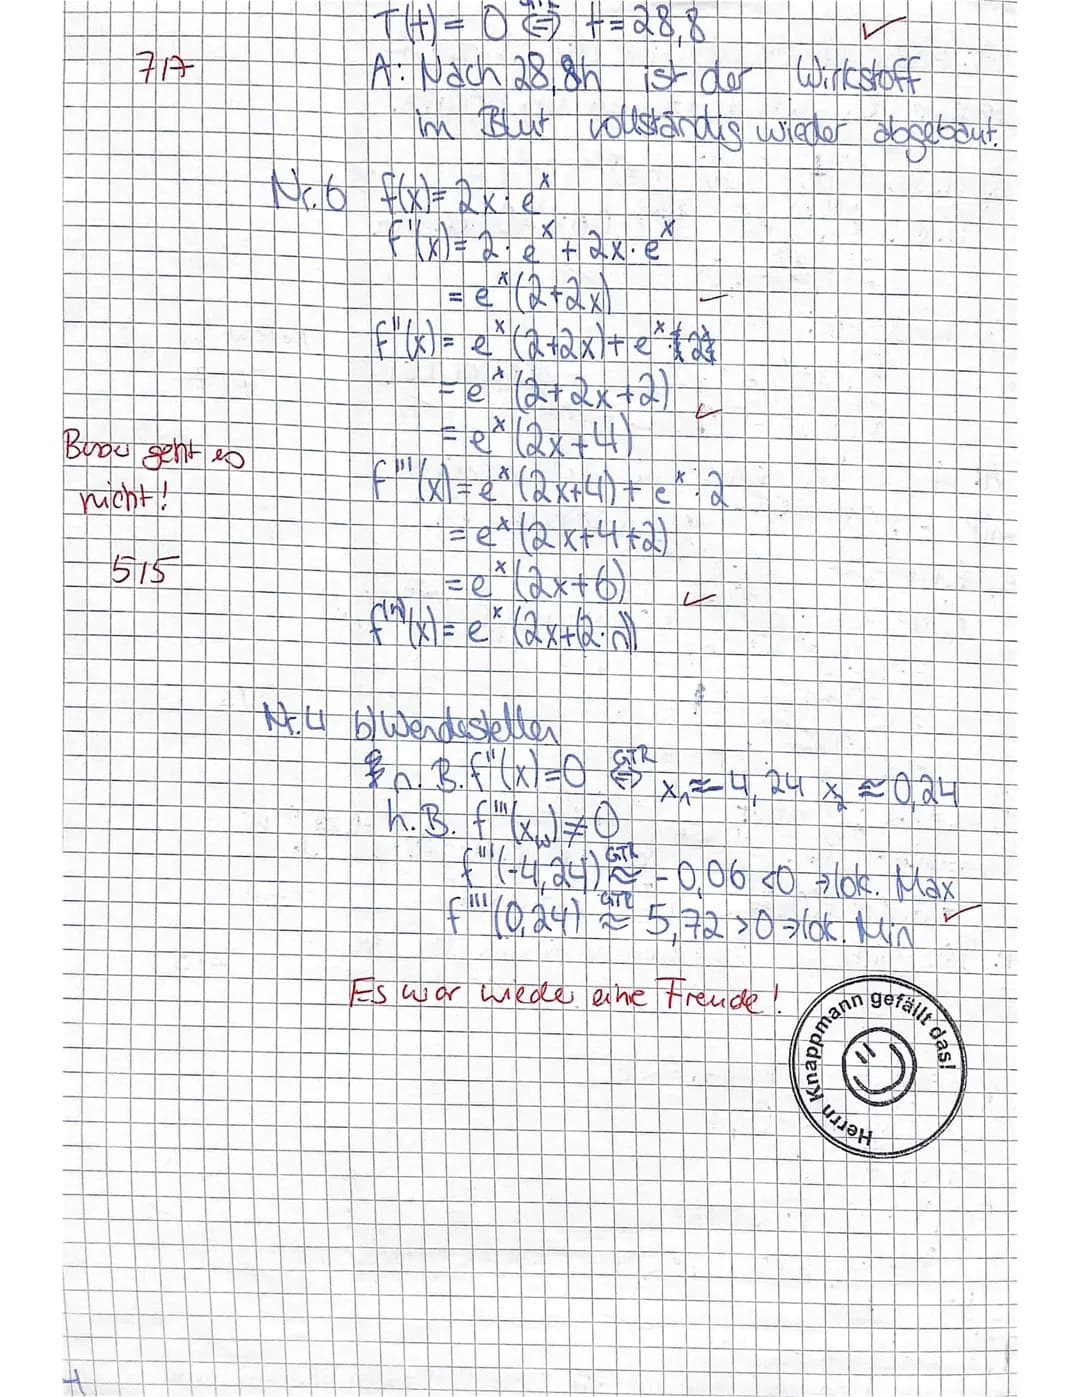 T(t) = 0 ⇔ t = 28,8
7/7
A: Nach 28,8h ist der Wirkstoff
im Blut vollständig wieder abgebaut.
Nr. 6 f(x) = 2x · e^x
f'(x) = 2 · e^x + 2x · e^x
= e^x (2+2x)
f''(x) = e^x (2+2x) + e^x · 2
= e^x (2+2x+2)
= e^x (2x+4)
Besser geht es
nicht!
f'''(x) = e^x (2x+4) + e^x · 2
= e^x (2x+4+2)
5/5
= e^x (2x+6)
f^(n)(x) = e^x (2x+(2·n))
Nr. 4 b) Wendestellen
n. B. f''(x)=0 GTR ⇔ x₁≈-4,24 x₂≈0,24
h. B. f'''(xw) ≠ 0
f'''(-4,24) GTR ≈ -0,06 <0 → lok. Max
f'''(0,24) GTR ≈ 5,72 >0 → lok. Min
Es war wieder eine Freude!
Herrn Knappmann gefällt das!